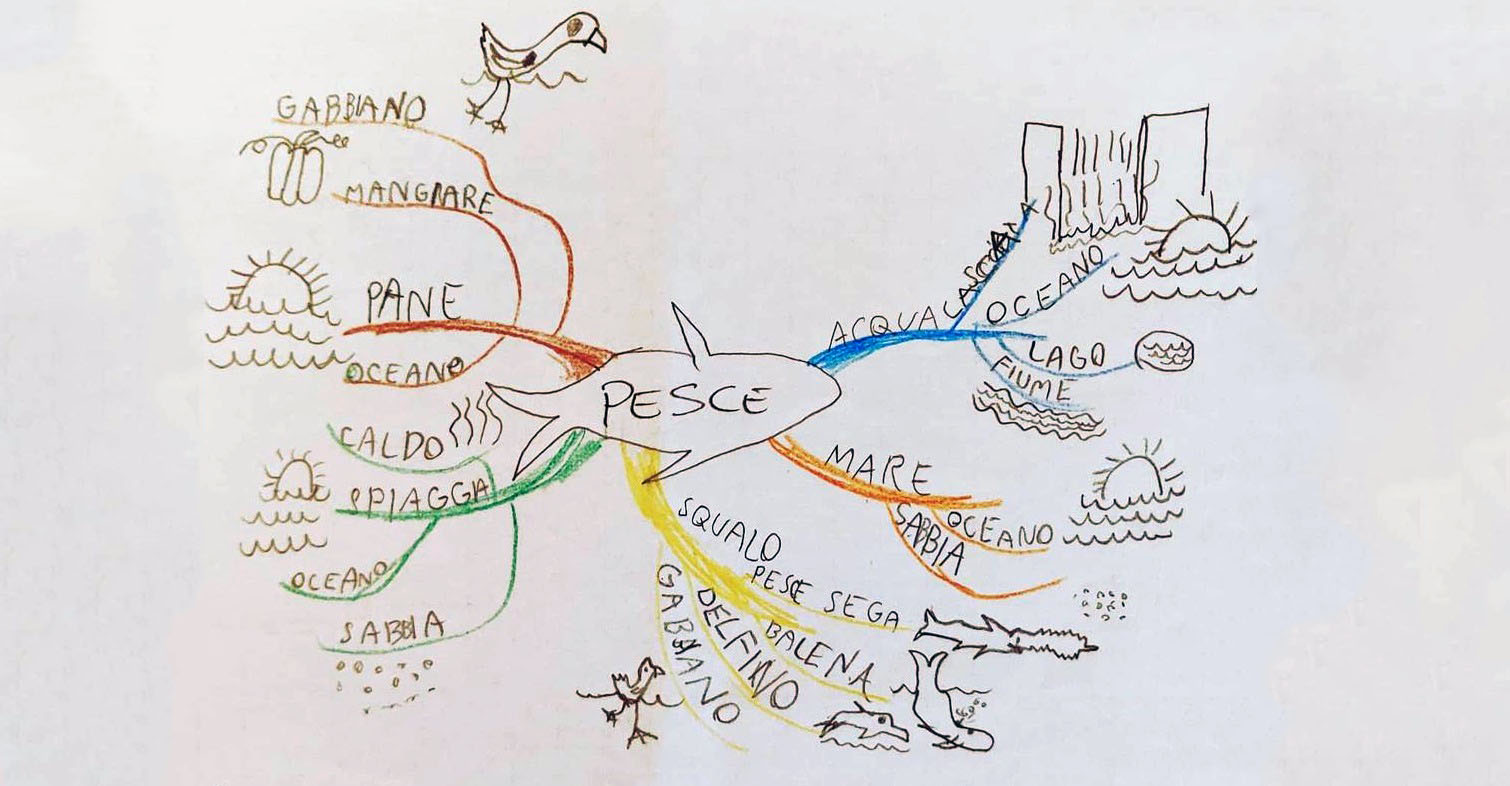 GABBIANO
MANGIARE
PANE
OCEANO
CALDO
SPIAGGA
OCEANO
SABBIA
PESCE
ACQUA
OCEANO
LAGO
FIUME
MARE
OCEANO
SABBIA
SQUALO
PESCE SEGA
BALENA
DELFINO
GABBIANO